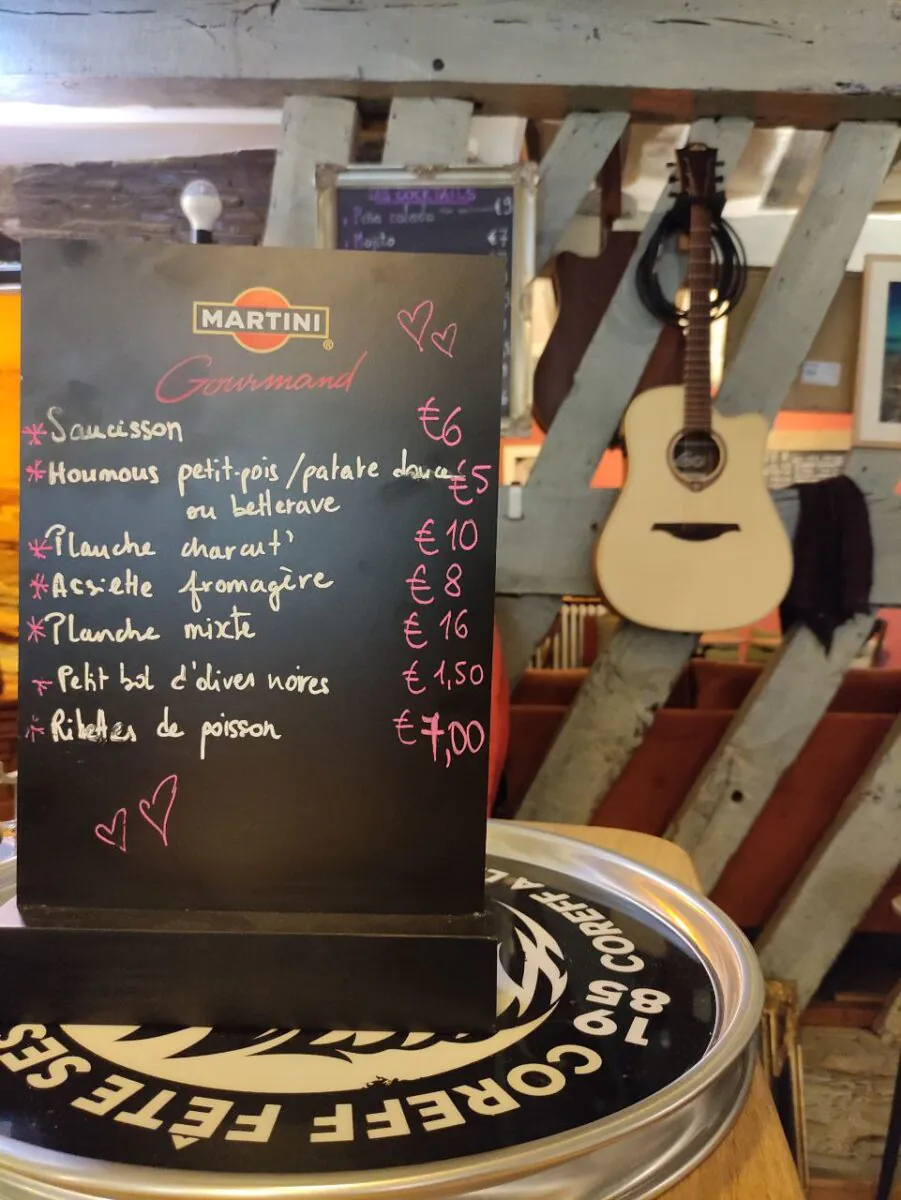 LES COCKTAILS
Piña colada €9
Mojito €7
MARTINI
Gourmand
* Saucisson €6
* Houmous petit-pois / patate douce €5
ou betterave
* Planche charcut' €10
* Assiette fromagère €8
* Planche mixte €16
* Petit bol d'olives noires €1,50
* Rillettes de poisson €7,00
COREFF FÊTE SES
1985
COREFF A